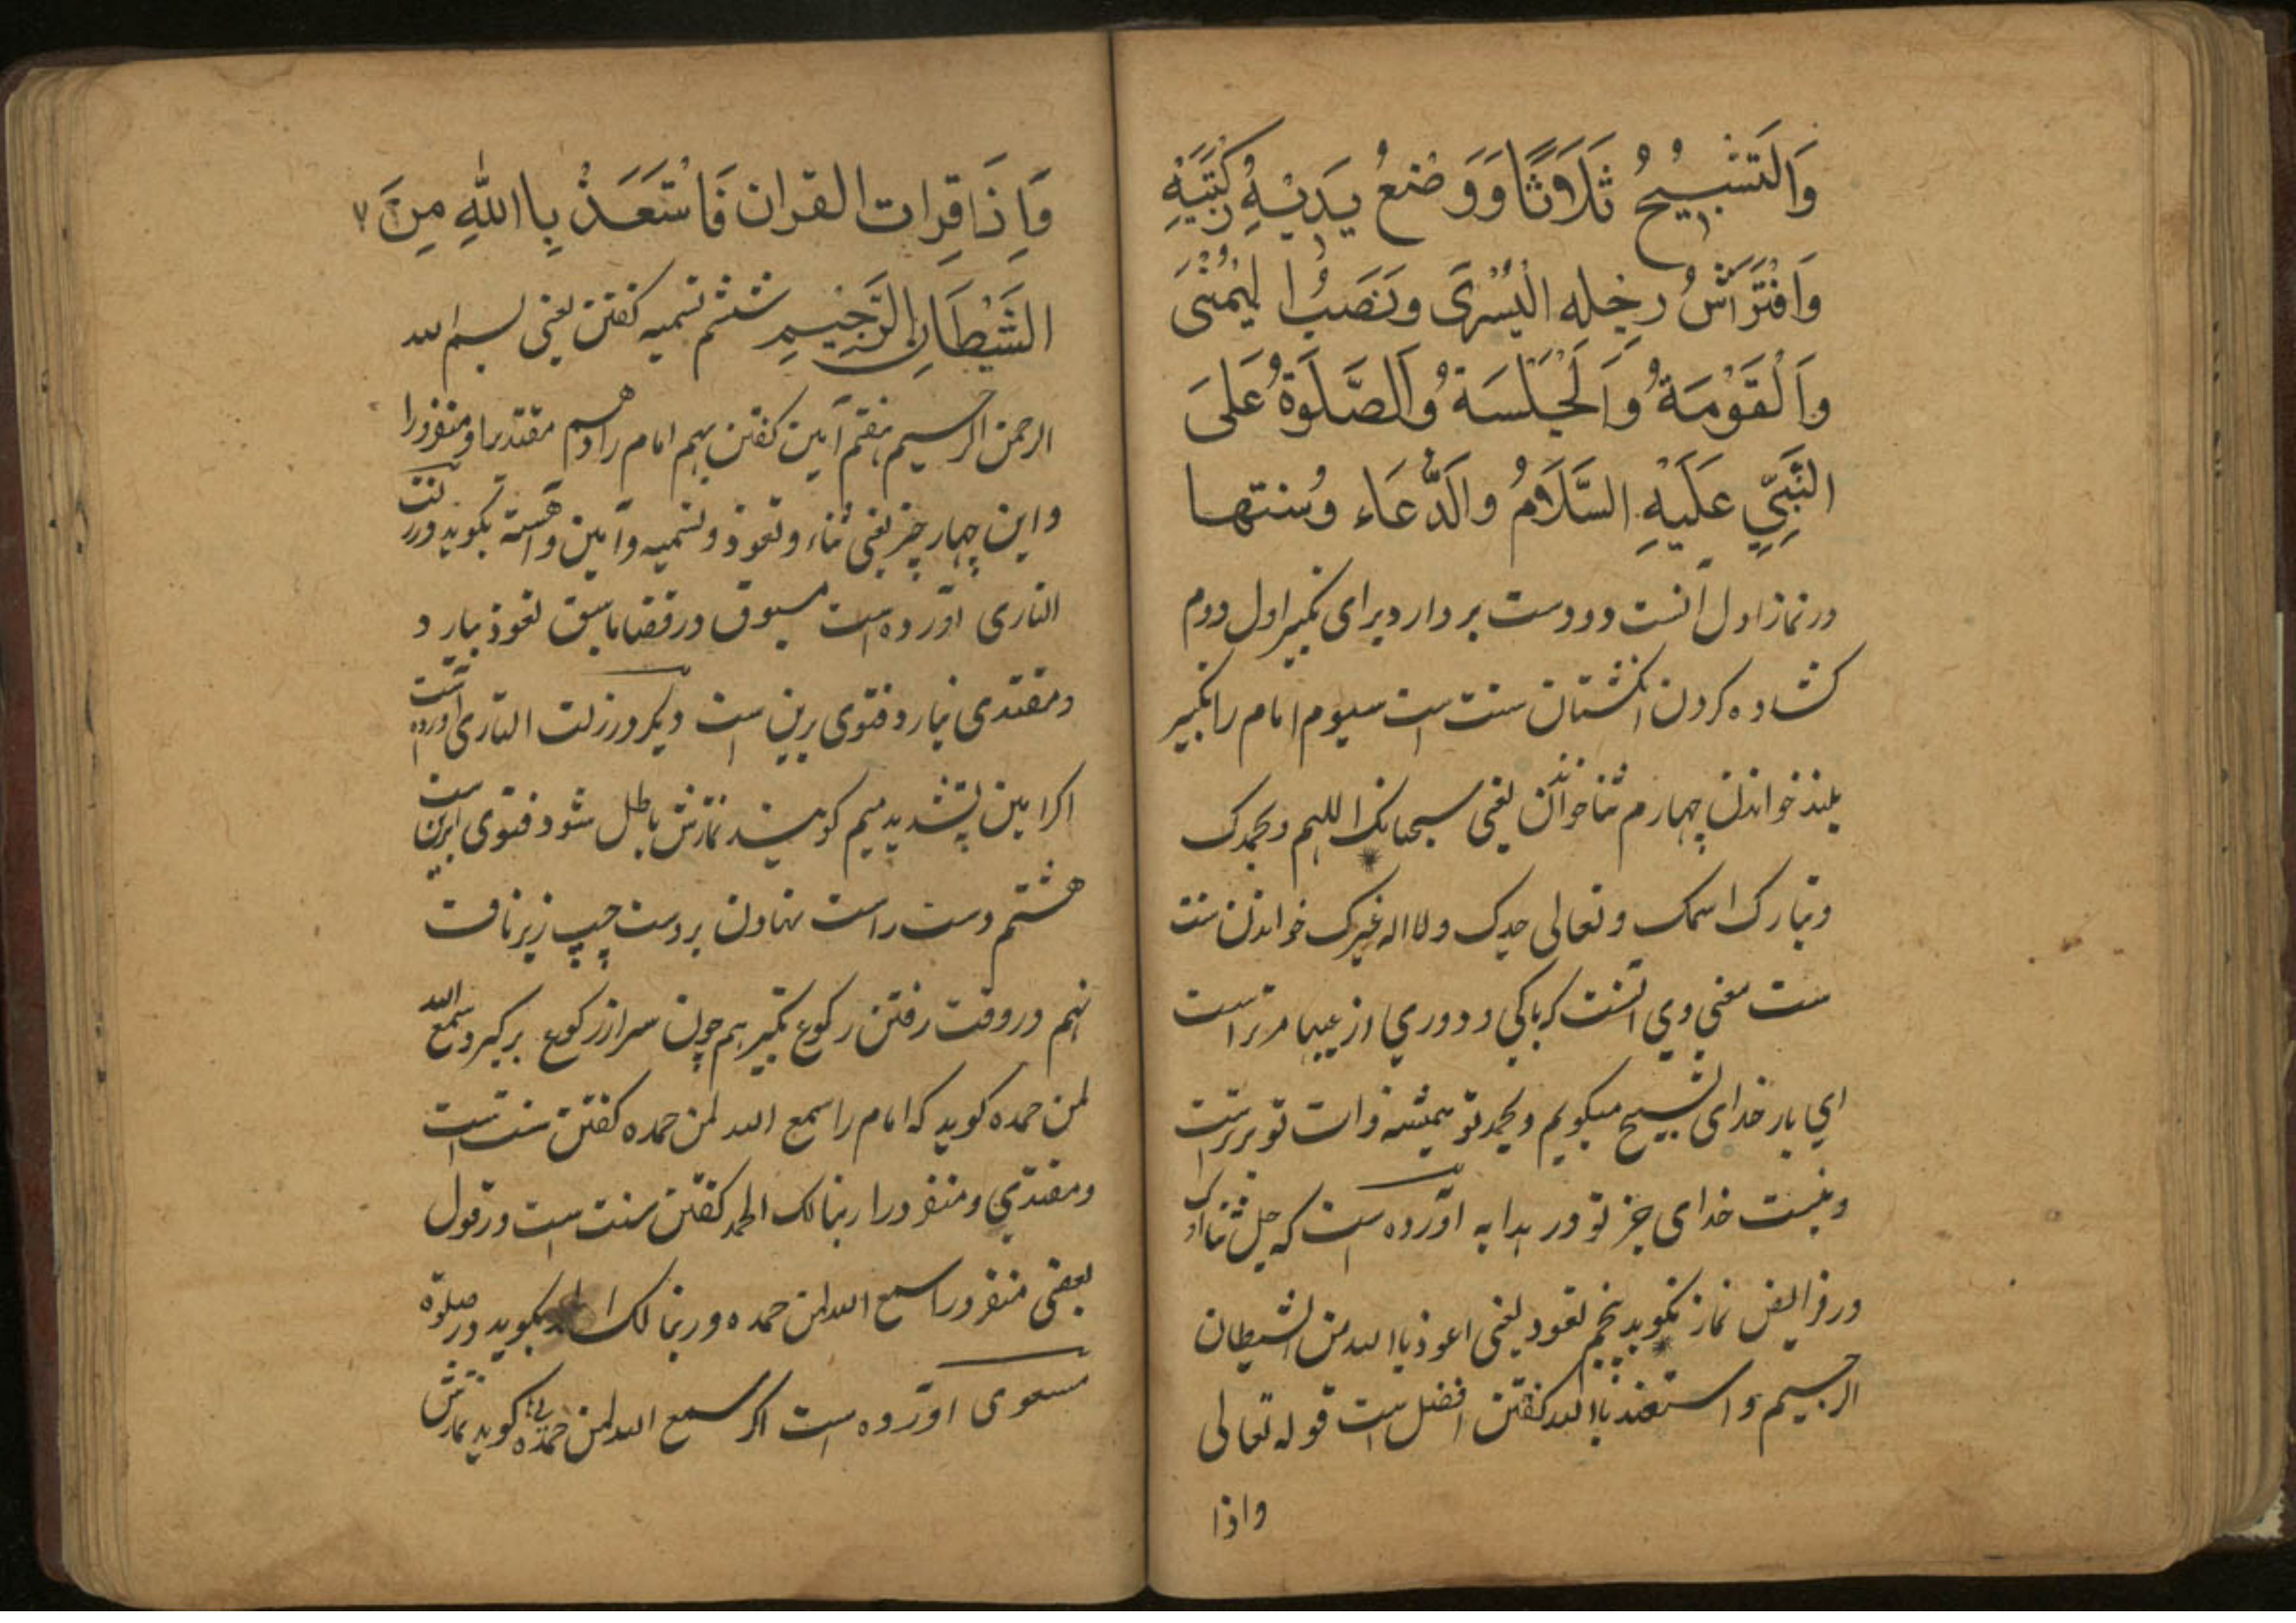 وَالتَسْبِيْحُ ثَلَاثًا وَوَضْعُ يَدَيْهِ رُكْبَتَيْهِ
وَافْتَرَاشُ رِجله الْيُسْرَى وَنَصَبُ ا ليُمْنَى
وَالْقَوْمَةُ وَالْجَلْسَةُ وَالصَّلَوةُ عَلىَ
النَّبِيِّ عَلَيْهِ السَّلَامُ والَدُّعَاء وسُنتها
در نماز اول آنست دو دست بردارد برای تکبیر اول دوم
کشاده کردن انکشتان سنت است سیوم امام را تکبیر
بلند خواندن چهارم ثنا خواندن یعنی سبحانک اللهم وبحمدک
وتبارک اسمک وتعالی جدک ولا اله غیرک خواندن سنت
ست معنی وی آنست که باکی و دوری از عیبها مر تراست
ای بار خدای تسبیح میکویم وبحمد تو همیشه ذات تو برتر است
ونیست خدای جز تو در هدایه آورده است که جل ثناؤک
در فرایض نماز نکوید پنجم تعود یعنی اعوذ باالله من الشیطان
الرجیم و استعیذ باالله کفتن افضل است قوله تعالی
واذا
وَاِذَا قِرات القران فَاسْتَعَذْ بِاالله مِنَ ٧
الشَيْطَانِ الرَّجِيْمِ ششم تسمیه کفتن یعنی بسم الله
الرحمن الرحیم هفتم آمین کفتن هم امام را وهم مقتدیرا ومنفرد را
واین چهار چیز یعنی ثناء وتعوذ وتسمیه وآمین واهسته بکوید در زلت
القاری آورده است مسبوق در قضا ما سبق تعوذ بیارد
ومقتدی نیارد فتوی برین است دیکر در زلت القاری آورده است
اکر امین بتشدید میم کویند نمازش باطل شود فتوی برین است
هشتم دست راست نهادن بر دست چپ زیر ناف
نهم در وقت رفتن رکوع تکبیر هم چون سر از رکوع برکیرد سمع الله
لمن حمده کوید که امام را سمع الله لمن حمده کفتن سنت است
ومقتدی ومنفرد را ربنا لک الحمد کفتن سنت است ودر قول
بعضی منفرد را سمع الله لمن حمده وربنا لک الحمد بکوید در صلوة
مسعودی آورده است اکر سمع الله لمن حمده کوید نمازش